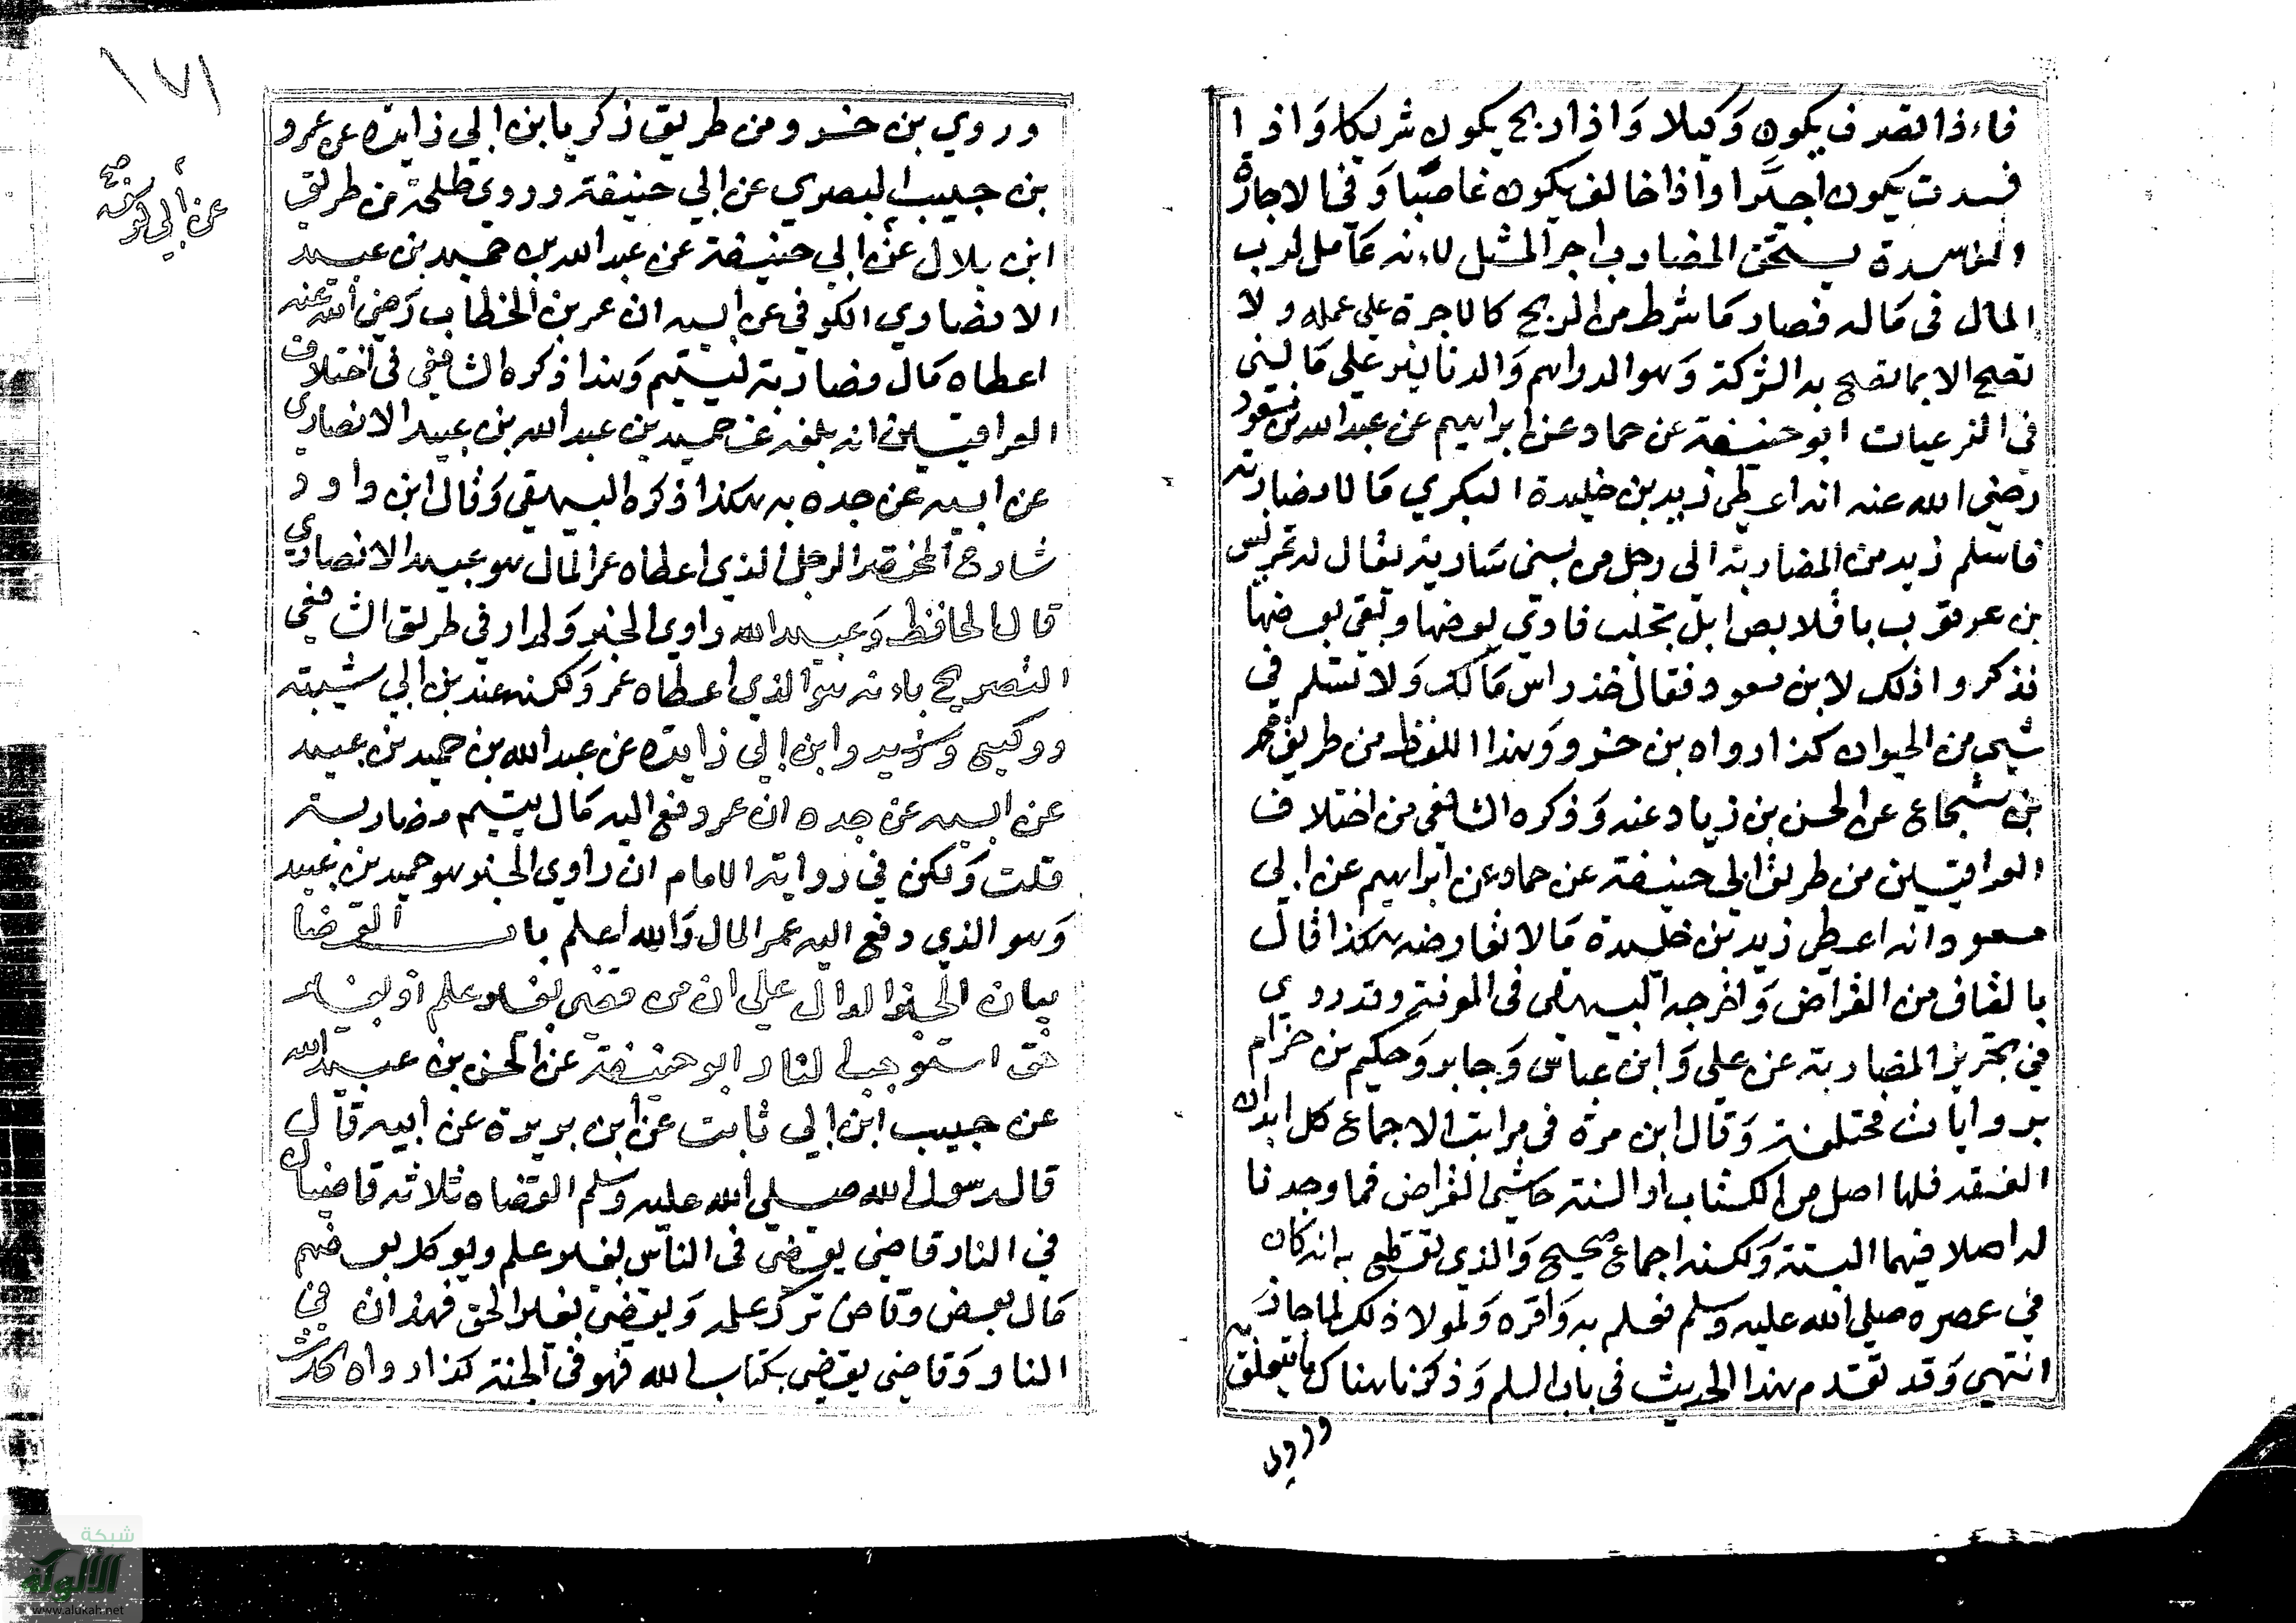 فاءذا تصرف يكون وكيلا واذا ربح يكون شريكا واذا
فسدت يكون اجيرا واذا خالف يكون غاصبا وفي الاجارة
الفاسدة يستحق المضارب اجر المثل لاءنه عامل لرب
المال فى ماله فصار ما شرط من الربح كالاجرة على عمله ولا
تصح الا بما تصح به الشركة وهو الدراهم والدنانير على ما بينى
فى الفرعيات ابو حنيفة عن حماد عن ابراهيم عن عبد الله بن مسعود
رضي الله عنه انه اعطى زيد بن خليدة البكري مالا مضاربة
فاسلم زيد من المضاربة الى رجل من بنى يقال له
بن بقلايص ابل فادي بعضها وبقي بعضها
فذكروا ذلك لابن مسعود فقال خذ راس مالك ولا تسلم في
شيي من الحيوان كذا رواه بن خسرو وهذا اللفظ من طريق محمد
بن شجاع عن الحسن بن زياد عنه وذكره الشافعي من اختلاف
العراقيين من طريق ابي حنيفة عن حماد عن ابراهيم عن ابي
مسعود انه اعطى زيد بن خليدة مالا مقارضة هكذا قال
بالقاف من القراض واخرجه البيهقي فى المعرفة وقد روي
في تجويز المضاربة عن علي وابن عباس وجابر وحكيم بن حزام
بروايات مختلفة وقال ابن مرة فى مراتب الاجماع كل ابواب
الفقه فلها اصل من الكتاب او السنة حاشى القراض فما وجدنا
له اصلا فيهما البتة ولكنه اجماع صحيح والذي نقطع به انه كان
في عصره صلى الله عليه وسلم فعلم به واقره ولولا ذلك لما جاز
انتهى وقد تقدم هذا الحديث فى باب السلم وذكرنا هناك ما يتعلق به
وروى
١٧١
وروي بن خسرو من طريق زكريا بن ابي زايدة عن عمرو
بن حبيب البصري عن ابي حنيفة وروي طلحة من طريق
ابن بلال عن ابي حنيفة عن عبد الله بن حميد بن عبيد
الانصاري الكوفي عن ابيه ان عمر بن الخطاب رضي الله عنه
اعطاه مال مضاربة ليتيم وهذا ذكره الشافعي في اختلاف
العراقيين انه بلغه عن حميد بن عبد الله بن عبيد الانصاري
عن ابيه عن جده به هكذا ذكره البيهقي وقال ابن داود
شارح المختصر الرجل الذي اعطاه عمر المال هو عبيد الانصاري
قال الحافظ وعبيد الله راوي الخبر ولم ار في طريق الشافعي
التصريح باءنه هو الذي اعطاه عمر ولكنه عند بن ابي شيبة
ووكيع وابن ابي زايدة عن عبد الله بن حميد بن عبيد
عن ابيه عن جده ان عمر دفع اليه مال يتيم مضاربة
قلت ولكن في رواية الامام ان راوي الخبر هو حميد بن عبيد
وهو الذي دفع اليه عمر المال والله اعلم باب القضا
بيان الخبر الدال على ان من قضى بغير علم او بغير
حق استوجب النار ابو حنيفة عن الحسن بن عبيد الله
عن حبيب ابن ابي ثابت عن ابن بريدة عن ابيه قال
قال رسول الله صلى الله عليه وسلم القضاه ثلاثه قاضيان
في النار قاضى يقضى فى الناس بغير علم ويوكل بعضهم
مال بعض وقاض ترك علمه ويقضى بغير الحق فهذان في
النار وقاضى يقضى بكتاب الله فهو فى الجنة كذا رواه